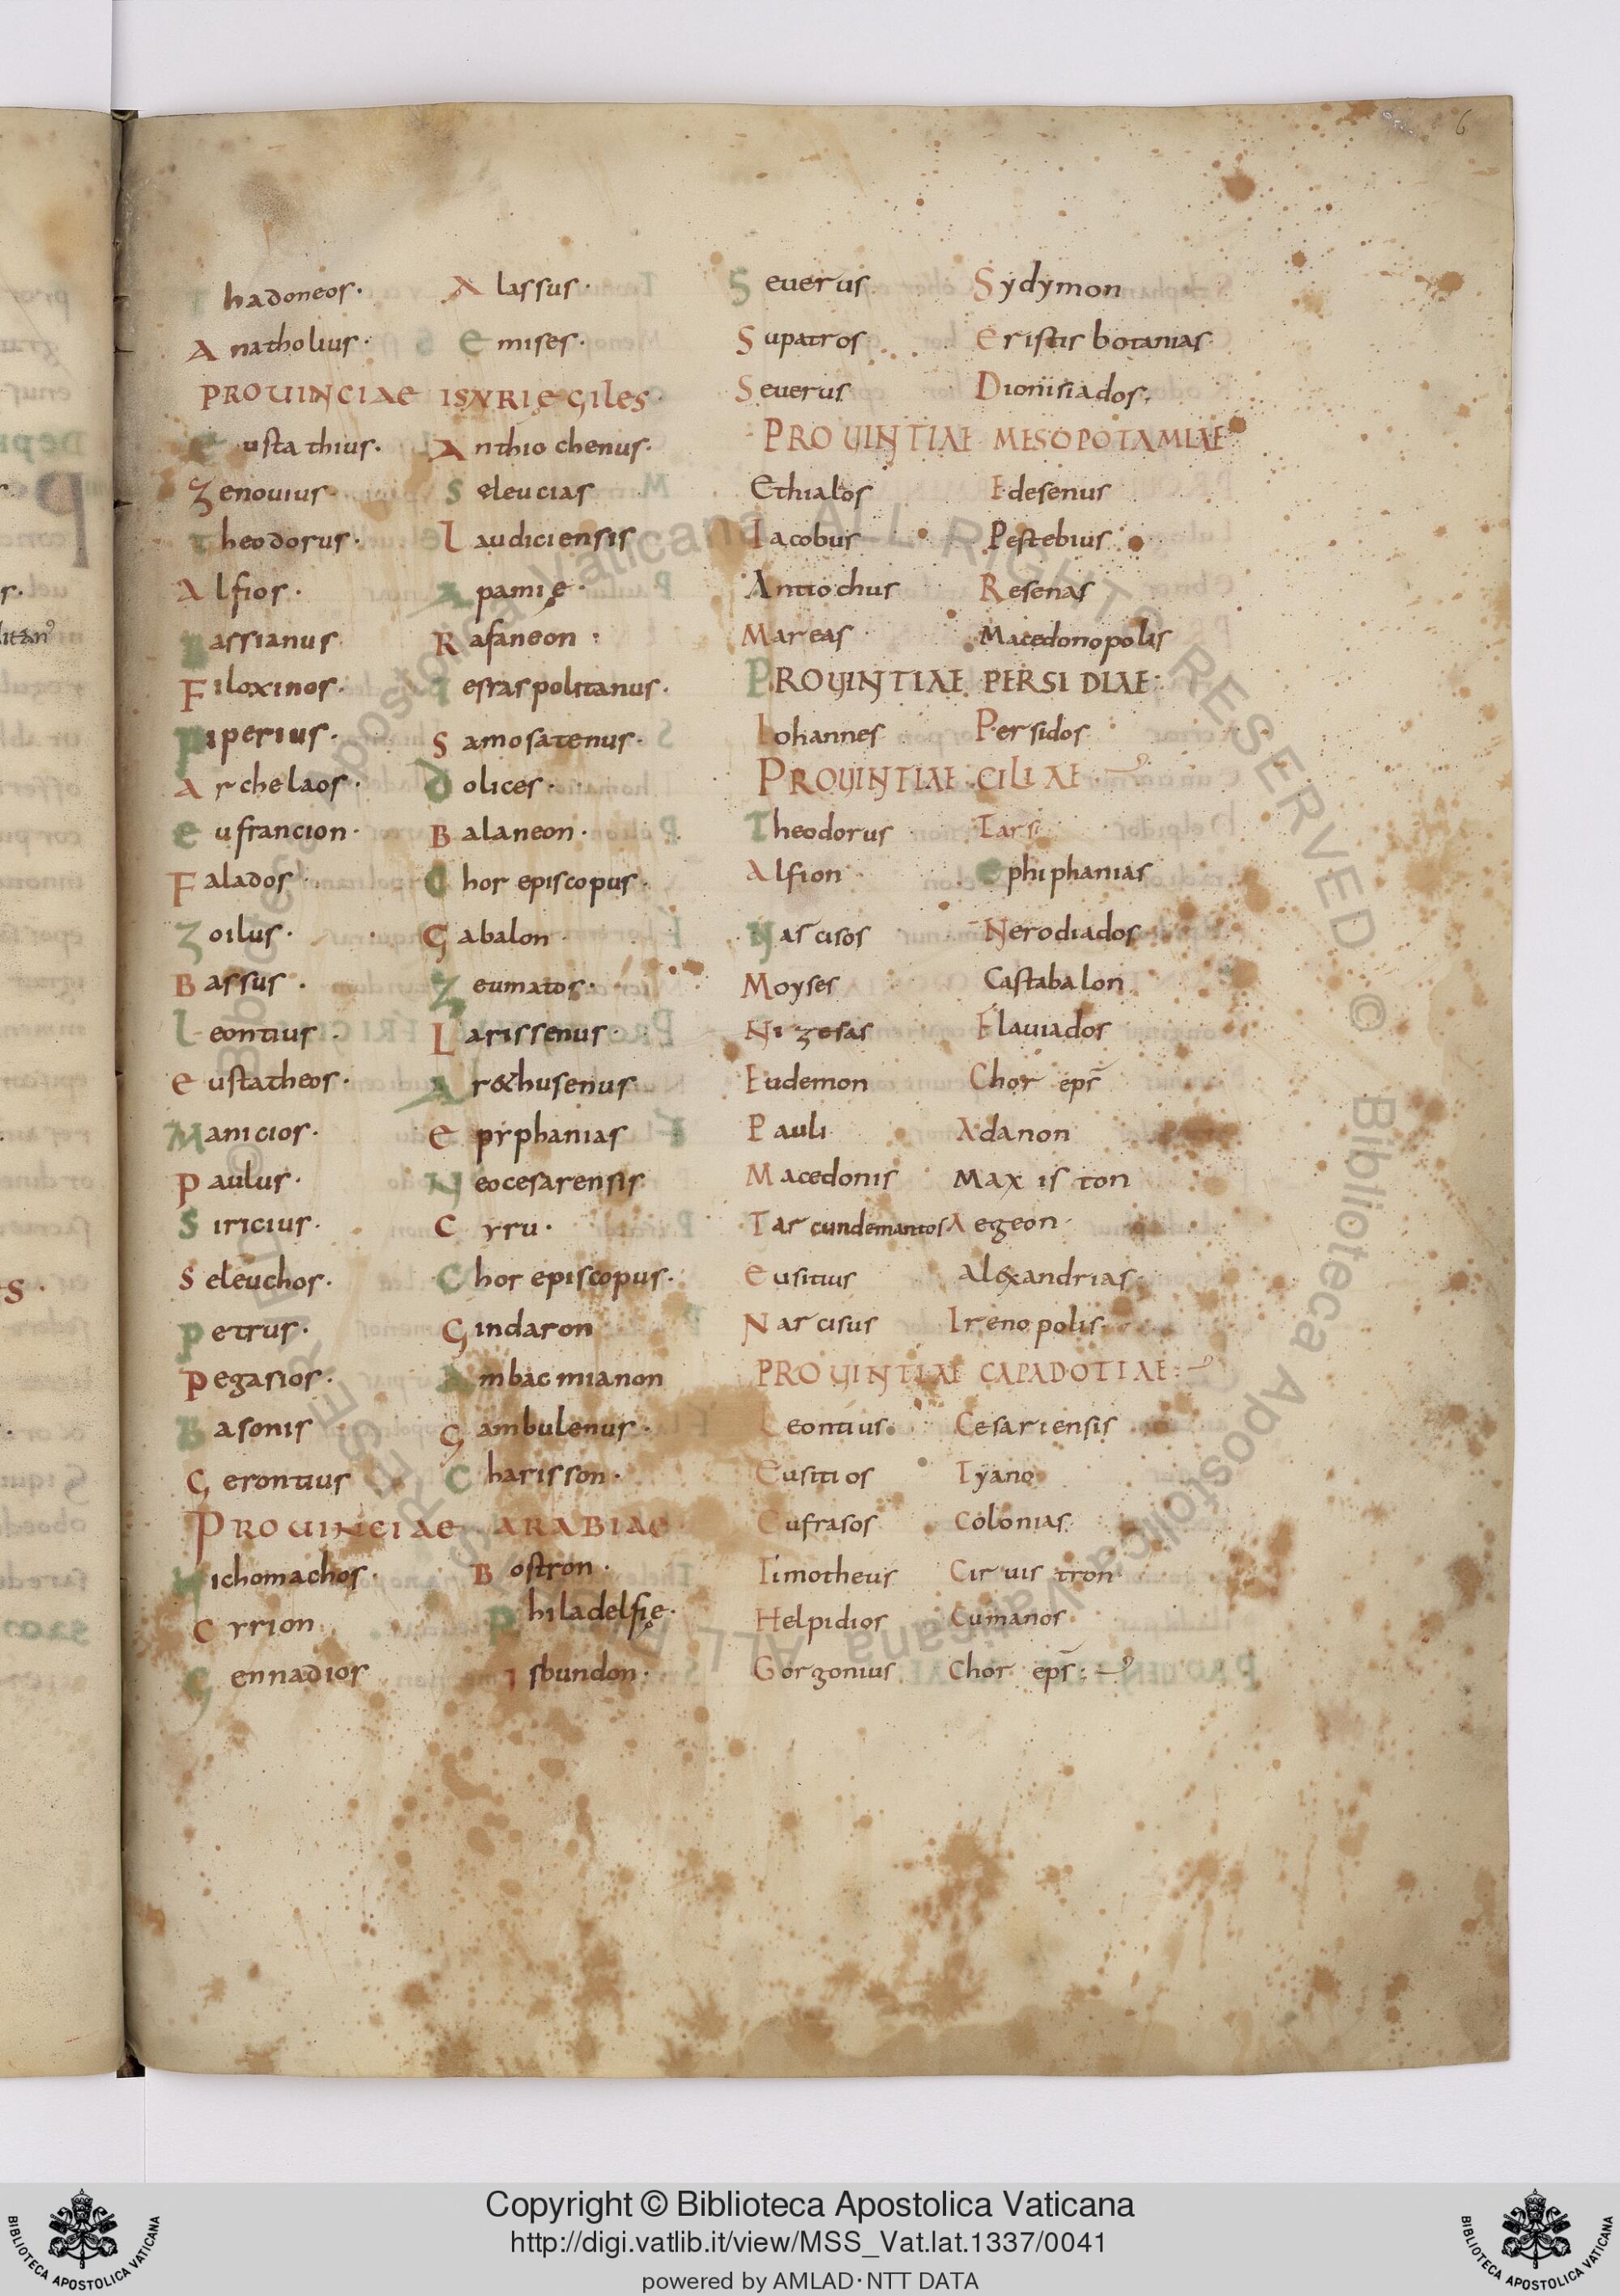 6
Thadoneos· Alassus·
Anatholius· Emises·
PROUINCIAE ISYRIE GILES·
Eustathius· Anthiochenus·
Zenouius· Seleucias
Theodorus· Laudiciensis
Alfios· Apamię·
Bassianus· Rafaneon :
Filoxinos· Iesraspolitanus·
Piperius· Samosatenus·
Archelaos· Dolices·
Eufrancion· Balaneon·
Falados· Chor episcopus·
Zoilus· Gabalon·
Bassus· Zeumatos·
Leontius· Larissenus·
Eustatheos· Ar&husenus
Manicios· Epyphanias
Paulus· Neocesarensis
Siricius· Cyru·
Seleuchos· Chor episcopus·
Petrus· Gindaron
Pegasios· Ambacmianon
Basonis Gambulenus·
Gerontius Charisson·
PROUINCIAE ARABIAE·
Nichomachos· Bostron·
Cyrion Philadelfię·
Gennadios Isbundon·
Seuerus Sydymon
Supatros Eristis botanias
Seuerus Dionisiados·
PROUINTIAE MESOPOTAMIAE
Ethialos Edesenus
Iacobus Pestebius
Antiochus Resenas
Mareas Macedonopolis
PROUINTIAE PERSIDIAE·
Iohannes Persidos
PROUINTIAE CILIAE·
Theodorus Tarsi
Alfion Ephiphanias
Narcisos Nerodiados
Moyses Castabalon
Nizesas Flauiados
Eudemon Chor eps̄
Pauli Adanon
Macedonis Maxiston
Tarcundemantos Aegeon·
Eusitius Alexandrias·
Narcisus Irenopolis
PROUINTIAE CAPADOTIAE :
Leontius Cesariensis
Eusitios Tyano
Eufrasos Colonias
Timotheus Ciruistron
Helpidios Cumanos
Gorgonius Chor eps̄ :
Copyright © Biblioteca Apostolica Vaticana
http://digi.vatlib.it/view/MSS_Vat.lat.1337/0041
powered by AMLAD·NTT DATA